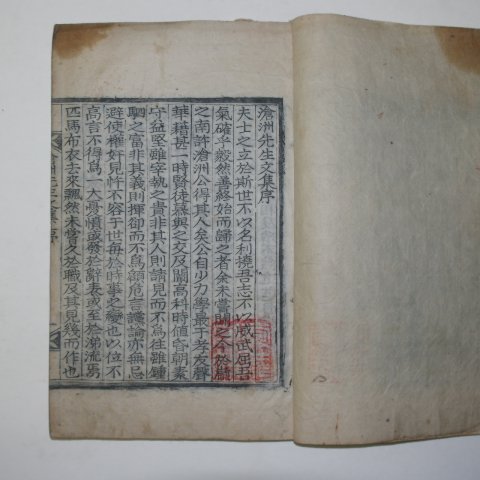 滄洲先生文集序
夫士之立於斯世不以名利撓吾志不以威武屈吾
氣確乎毅然善終始而歸之者余未嘗聞之今於
之南許滄洲公得其人矣公自少力學最于孝友聲
華藉甚一時賢徒慕與之交及闡高科時値昏朝素
守益堅雖宰執之貴非其人則請見而不爲往雖鍾
駟之富非其義則揮卻而不爲顧危言讜論亦無忌
避使權奸見忤不容于世每於時事之變也以位不
高言不得爲一大憂慎或發於辭表或至於涕流焉
匹馬布衣去來飄然未嘗久於職及其見幾而作也